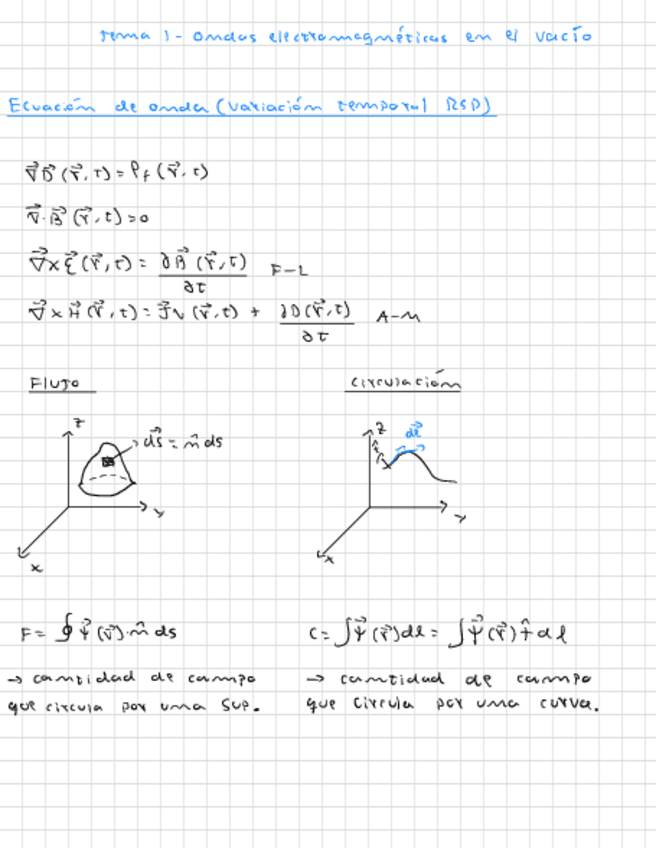 Tema 1 - Ondas electromagnéticas en el vacío
Ecuación de onda (variación temporal RSP)
∇⃗D⃗ (r⃗, t) = ρf (r⃗, t)
∇⃗·B⃗ (r⃗, t) = 0
∇⃗×ℰ⃗ (r⃗, t) = ∂B⃗ (r⃗, t) / ∂t F-L
∇⃗×H⃗ (r⃗, t) = J⃗v (r⃗, t) + ∂D(r⃗, t) / ∂t A-M
Flujo
z
ds⃗ = n̂ ds
y
x
F = ∮ Ψ⃗ (r⃗)·n̂ ds
→ cantidad de campo
que circula por una sup.
Circulación
z
dl⃗
y
x
C = ∫Ψ⃗ (r⃗)dl = ∫Ψ⃗ (r⃗) t̂ dl
→ cantidad de campo
que circula por una curva.